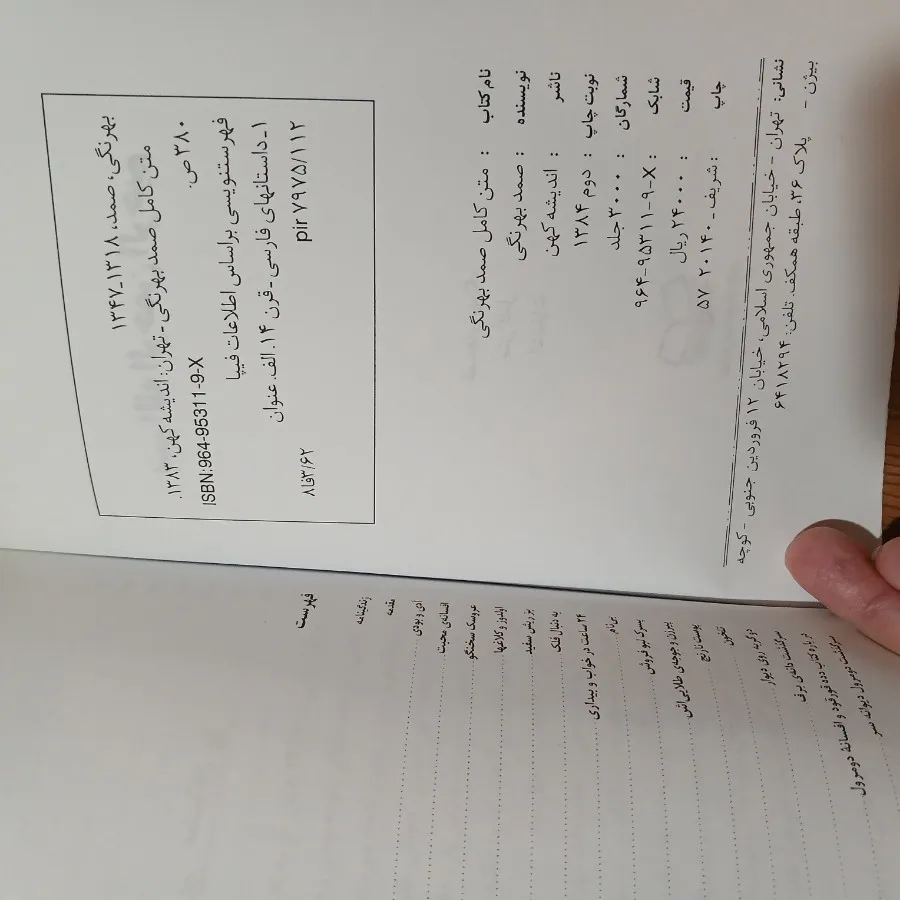 بهرنگی، صمد، ۱۳۱۸_۱۳۴۷
متن کامل صمد بهرنگی - تهران: اندیشه کهن، ۱۳۸۳.
۳۸۰ ص.
ISBN:964-95311-9-X
فهرستنویسی براساس اطلاعات فیپا
۱-داستانهای فارسی -قرن ۱۴. الف. عنوان
pir ۷۹۷۵/۱۱۲
۸فا۳/۶۲
نام کتاب : متن کامل صمد بهرنگی
نویسنده : صمد بهرنگی
ناشر : اندیشه کهن
نوبت چاپ : دوم ۱۳۸۴
شمارگان : ۳۰۰۰ جلد
شابک : ۹۶۴-۹۵۳۱۱-۹-X
قیمت : ۲۴۰۰۰ ریال
چاپ : شریف - ۲۰۱۴۰ ۵۷
نشانی: تهران - خیابان جمهوری اسلامی، خیابان ۱۲ فروردین جنوبی - کوچه
بیژن - پلاک ۳۶، طبقه همکف. تلفن: ۶۴۱۸۲۹۴
فهرست
زندگینامه
مقدمه
آدی و بودی
افسانه‌ی محبت
عروسک سخنگو
اولدوز و کلاغها
بز ریش سفید
به دنبال فلک
۲۴ ساعت در خواب و بیداری
بی‌نام
پسرک لبو فروش
پیرزن و جوجه‌ی طلایی‌اش
پوست نارنج
تلخون
دو گربه روی دیوار
سرگذشت دانه‌ی برف
درباره کتاب دده قورقود و افسانهٔ دومرول
سرگذشت دومرول دیوانه سر